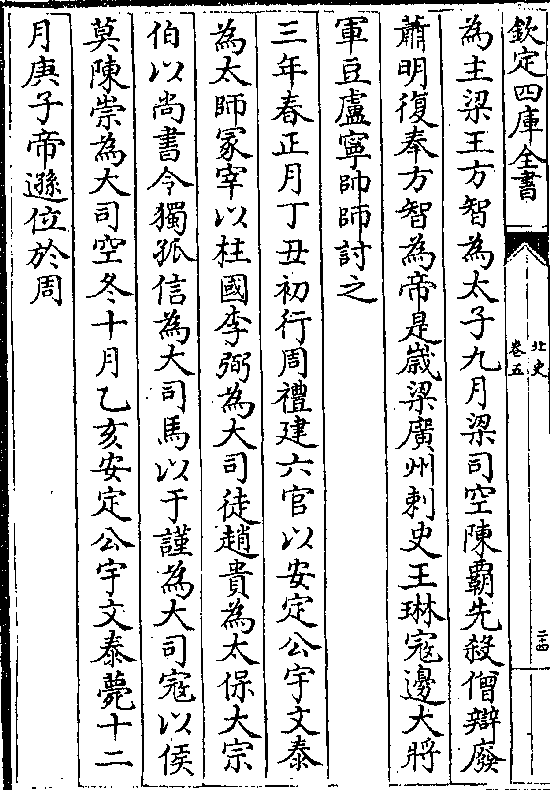 欽定四庫全書
北史
卷五
二十四
為主梁王方智為太子九月梁司空陳霸先殺僧辯廢
蕭明復奉方智為帝是歲梁廣州刺史王琳寇邊大將
軍豆盧寧帥師討之
三年春正月丁丑初行周禮建六官以安定公宇文泰
為太師冢宰以柱國李弼為大司徒趙貴為太保大宗
伯以尚書令獨孤信為大司馬以于謹為大司寇以侯
莫陳崇為大司空冬十月乙亥安定公宇文泰薨十二
月庚子帝遜位於周